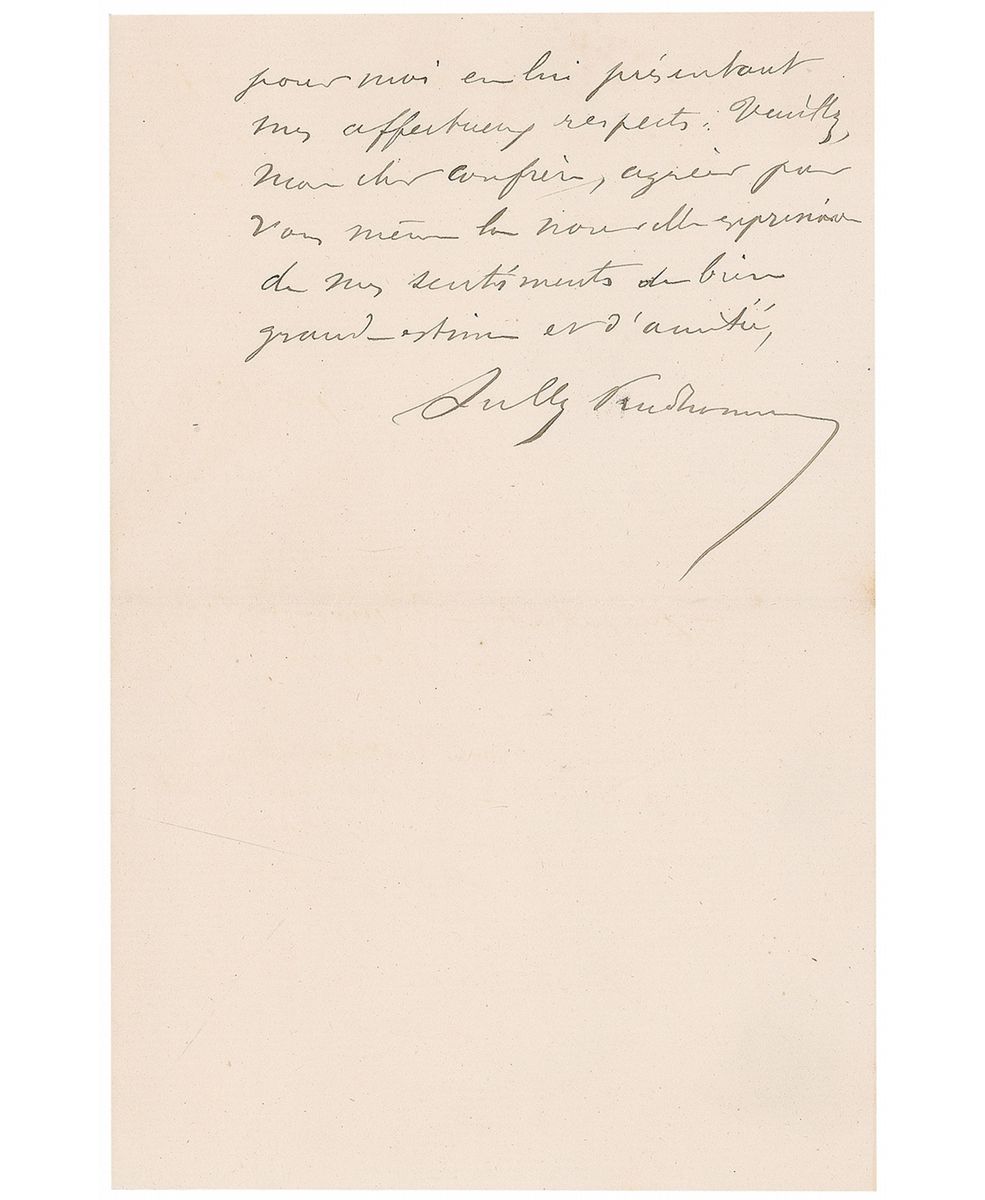 pour moi en lui présentant
mes affectueux respects. Veuillez,
mon cher confrère, agréer pour
vous même la nouvelle expression
de mes sentiments de bien
grande estime et d'amitié,
Sully Prudhomme